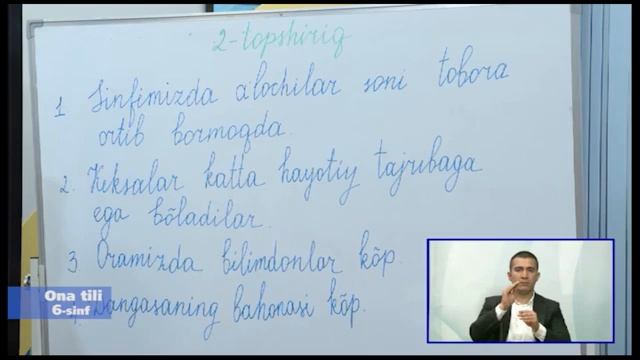 2-topshiriq
1. Sinfimizda a'lochilar soni tobora
ortib bormoqda.
2. Keksalar katta hayotiy tajribaga
ega bõladilar.
3. Oramizda bilimdonlar kõp.
Dangasaning bahonasi kõp.
Ona tili
6-sinf